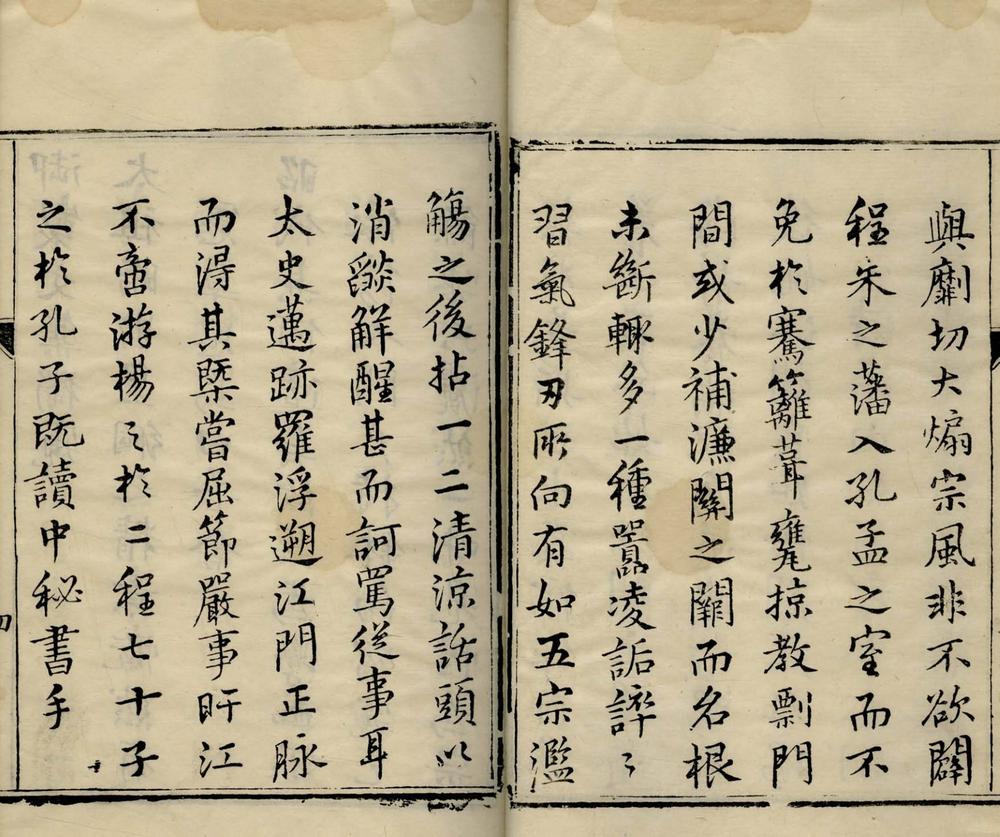 與劘切大煽宗風非不欲闢
程朱之藩入孔孟之室而不
免於騫籬葺甕掠教剽門
間或少補濂關之闕而名根
未斷輒多一種囂凌詬誶〻
習氣鋒刃所向有如五宗濫
觴之後拈一二清涼話頭以
消燄解酲甚而訶罵從事耳
太史邁跡羅浮遡江門正脉
而得其槩嘗屈節嚴事盱江
不啻游楊之於二程七十子
之於孔子既讀中秘書手
四